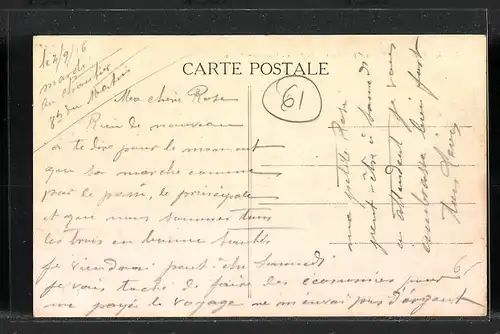 le 5/9/16
mardi
au chantier
8h du Matin
CARTE POSTALE
61
Ma chère Rose
Rien de nouveau
à te dire pour le moment
que sa marche comme
par le passé, le principale
et que nous sommes tous
les trois en bonne santé
je viendrai peut-être Samedi
je vous tachi de faire des économies pour
me payé le voyage ne m'envoi pas d'argent
ma petite Rose
peut-être à Samedi
en attendent je vous
embrasse bien fort
6,-